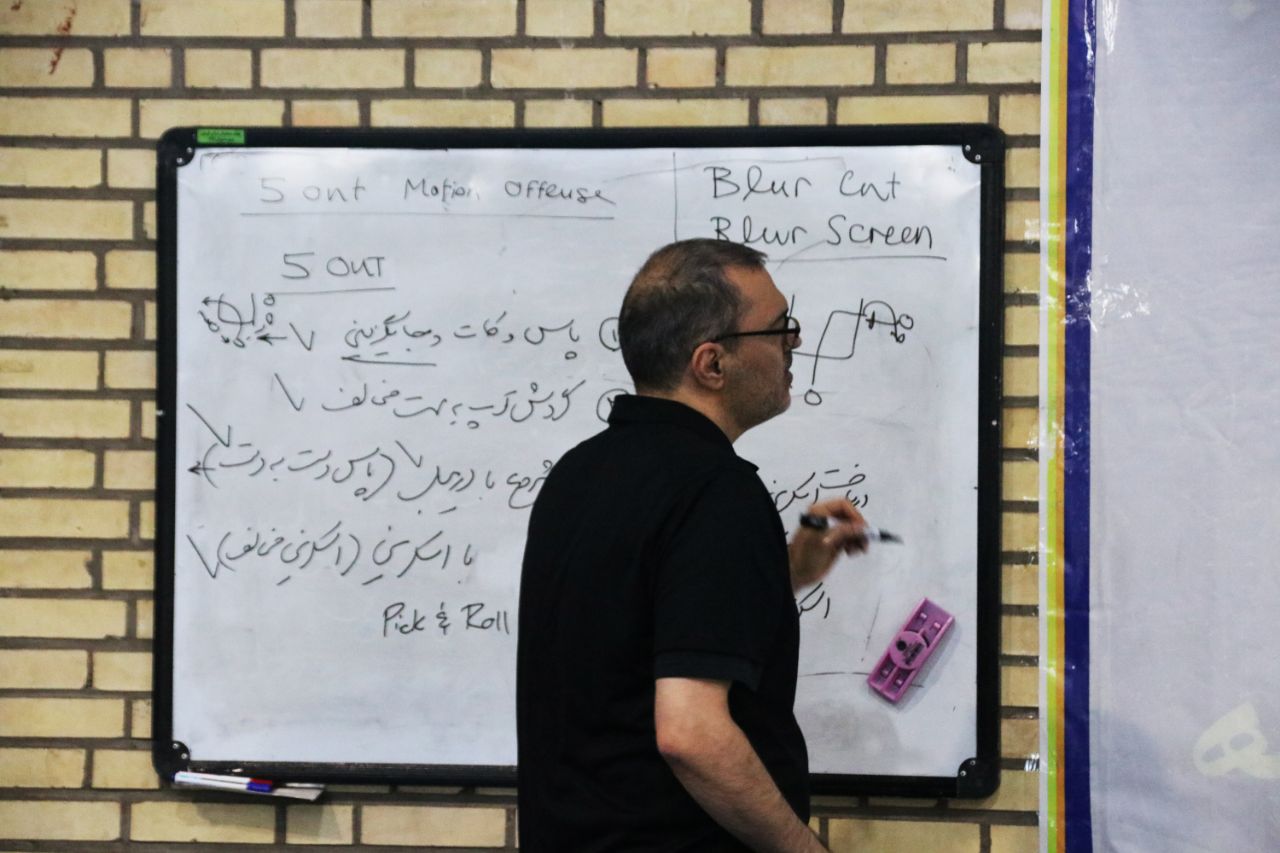 5 Out Motion Offense
Blur Cut
Blur Screen
5 OUT
① پاس و کات و جایگزینی
② گردش توپ به جهت مخالف
شروع با دریبل (پاس دست به دست)
با اسکرین (اسکرین مخالف)
Pick & Roll
دریافت اسکرین